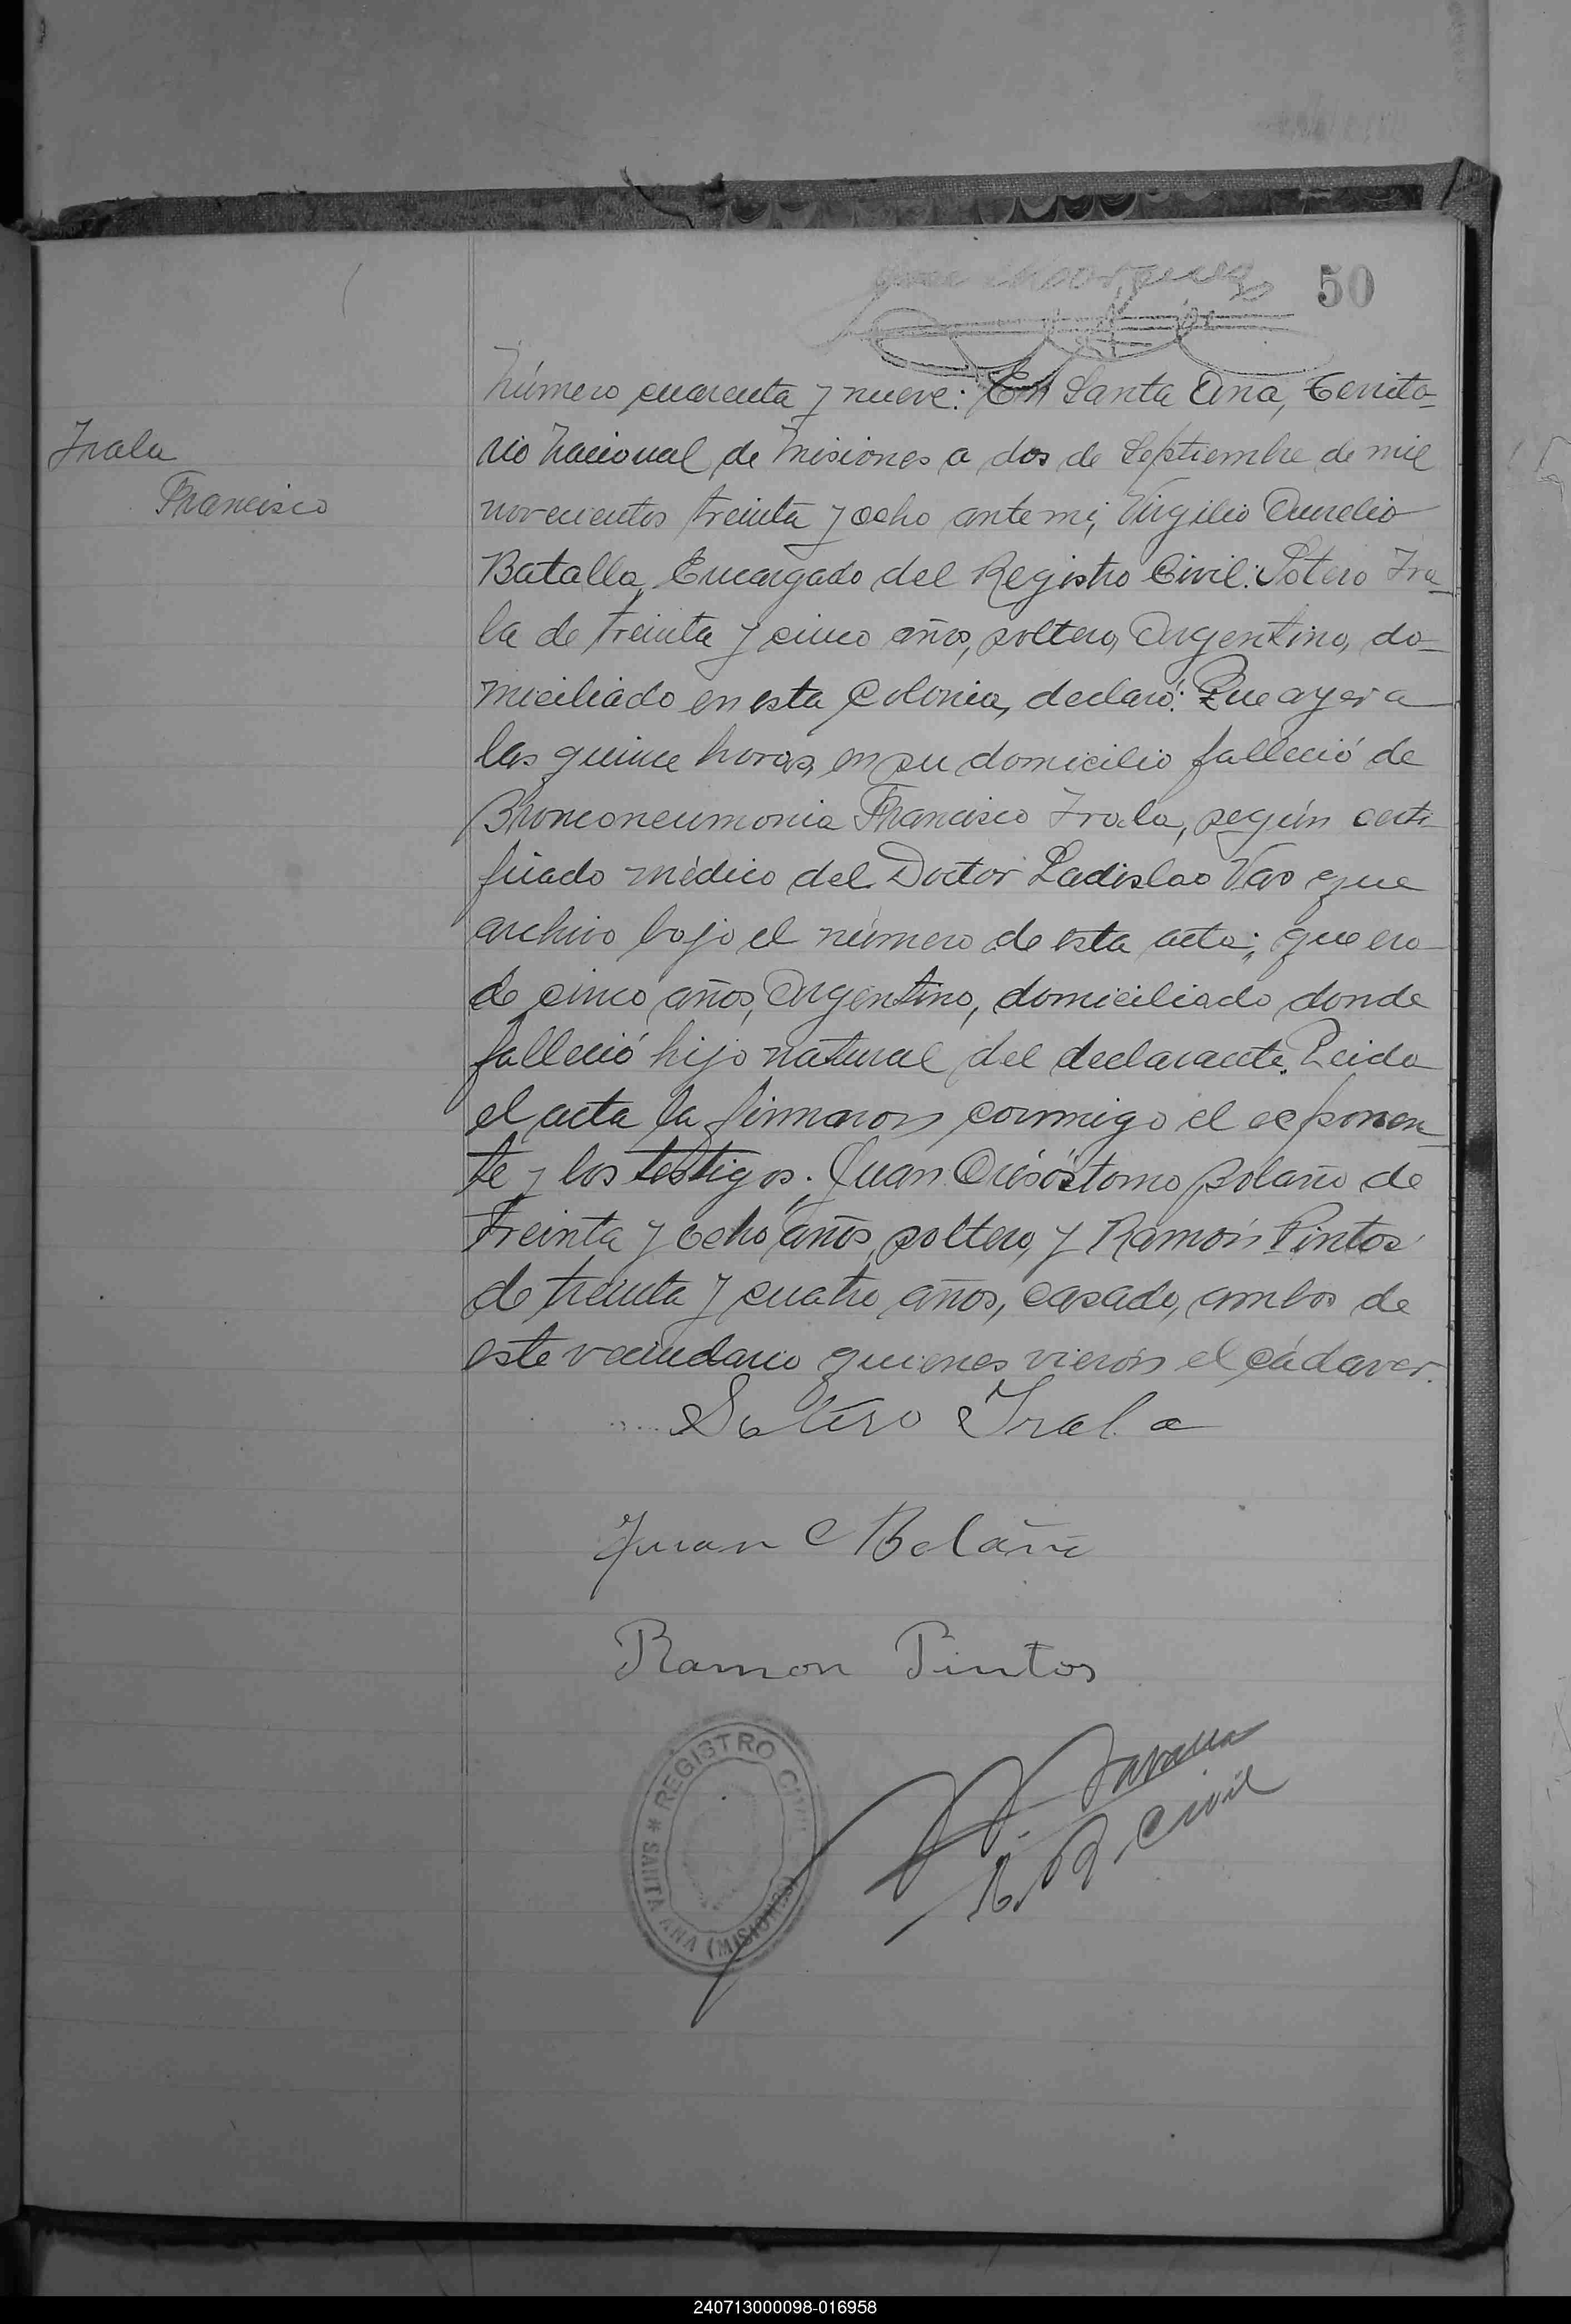 50
Irala
Francisco
Número cuarenta y nueve: En Santa Ana, Territo-
rio Nacional de Misiones a dos de Septiembre de mil
novecientos treinta y ocho ante mi, Virgilio Aurelio
Batalla, Encargado del Registro Civil: Sotero Ira-
la de treinta y cinco años, soltero, Argentino, do-
miciliado en esta Colonia, declaró: Que ayer a
las quince horas, en su domicilio falleció de
Bronconeumonia Francisco Irala, según certi-
ficado médico del Doctor Ladislao Vas que
archivo bajo el número de esta acta; que era
de cinco años, Argentino, domiciliado donde
falleció hijo natural del declarante. Leida
el acta la firmaron conmigo el exponen-
te y los testigos. Juan Crisóstomo
de
treinta y ocho años, soltero, y Ramón Pintos
de treinta y cuatro años, casado, ambos de
este vecindario quienes vieron el cádaver.
Sotero Irala
Juan C
Ramon Pintos
REGISTRO CIVIL
* SANTA ANA (MISIONES)
R. Civil
240713000098-016958